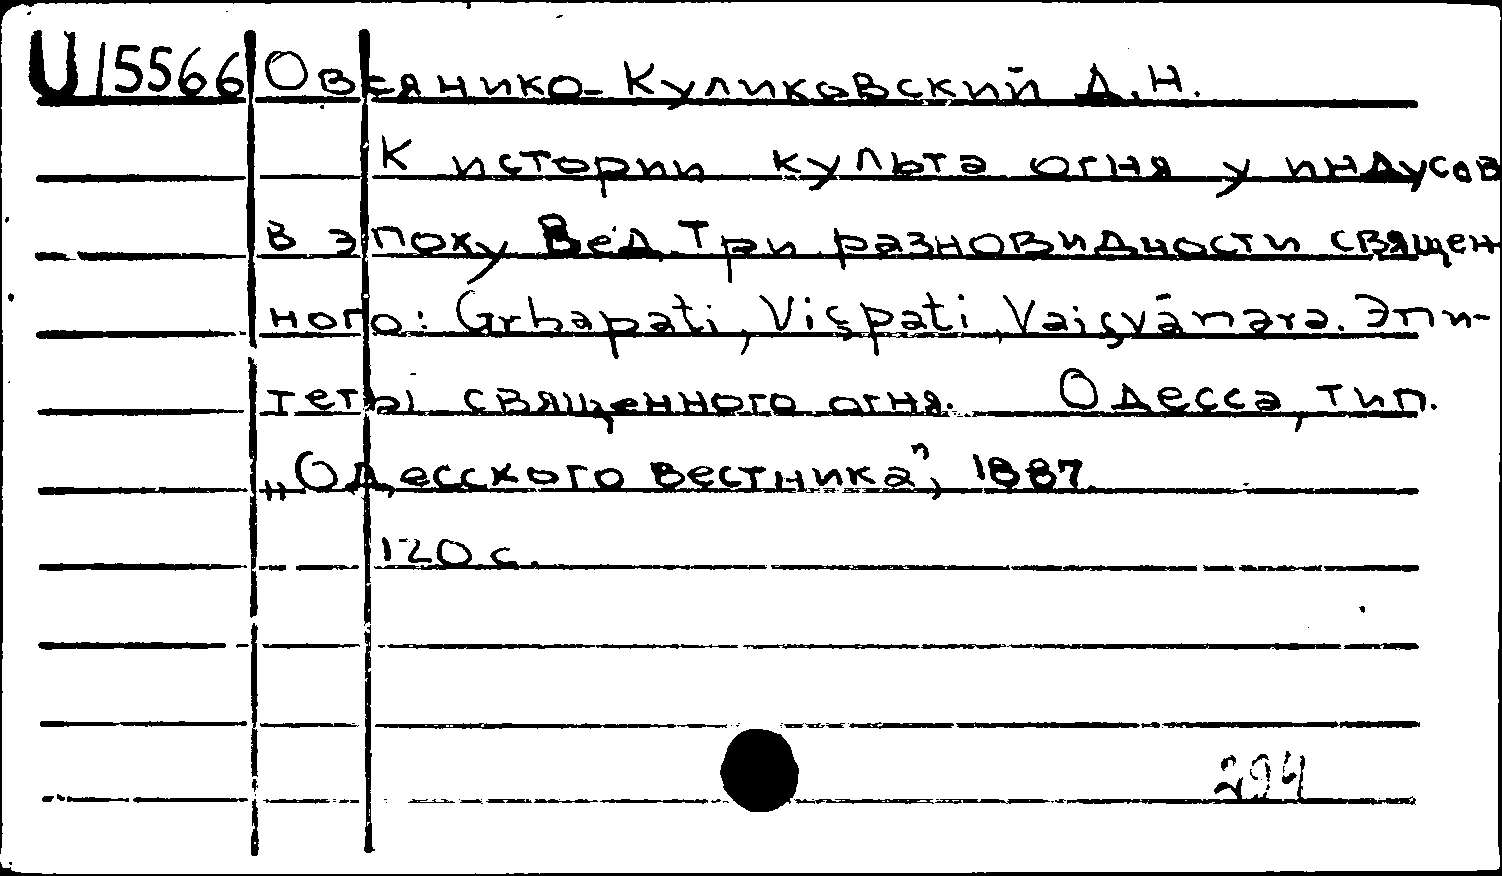 U 15566 Овсянико-Куликовский Д.Н.
К истории культа огня у индусов
в эпоху Вед. Три разновидности священ-
ного: Grhapati, Viçpati, Vaiçvānara. Эпи-
теты священного огня. Одесса, тип.
„Одесского вестника", 1887.
120 с.
294